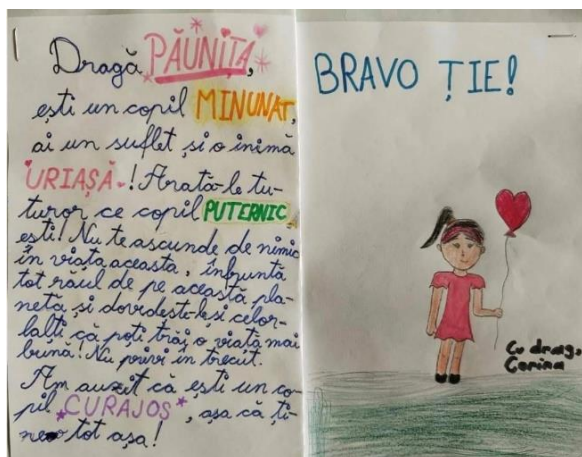 Dragă PĂUNIȚA,
ești un copil MINUNAT,
ai un suflet și o inimă
URIAȘĂ! Arată-le tu-
turor ce copil PUTERNIC
ești! Nu te ascunde de nimic
în viața aceasta, înfruntă
tot răul de pe această pla-
netă și dovdește-le și celor-
lalți că poți trăi o viață mai
bună! Nu privi în trecut.
Am auzit că ești un co-
pil *CURAJOS*, așa că ți-
ne tot așa!
BRAVO ȚIE!
Cu drag,
Corina